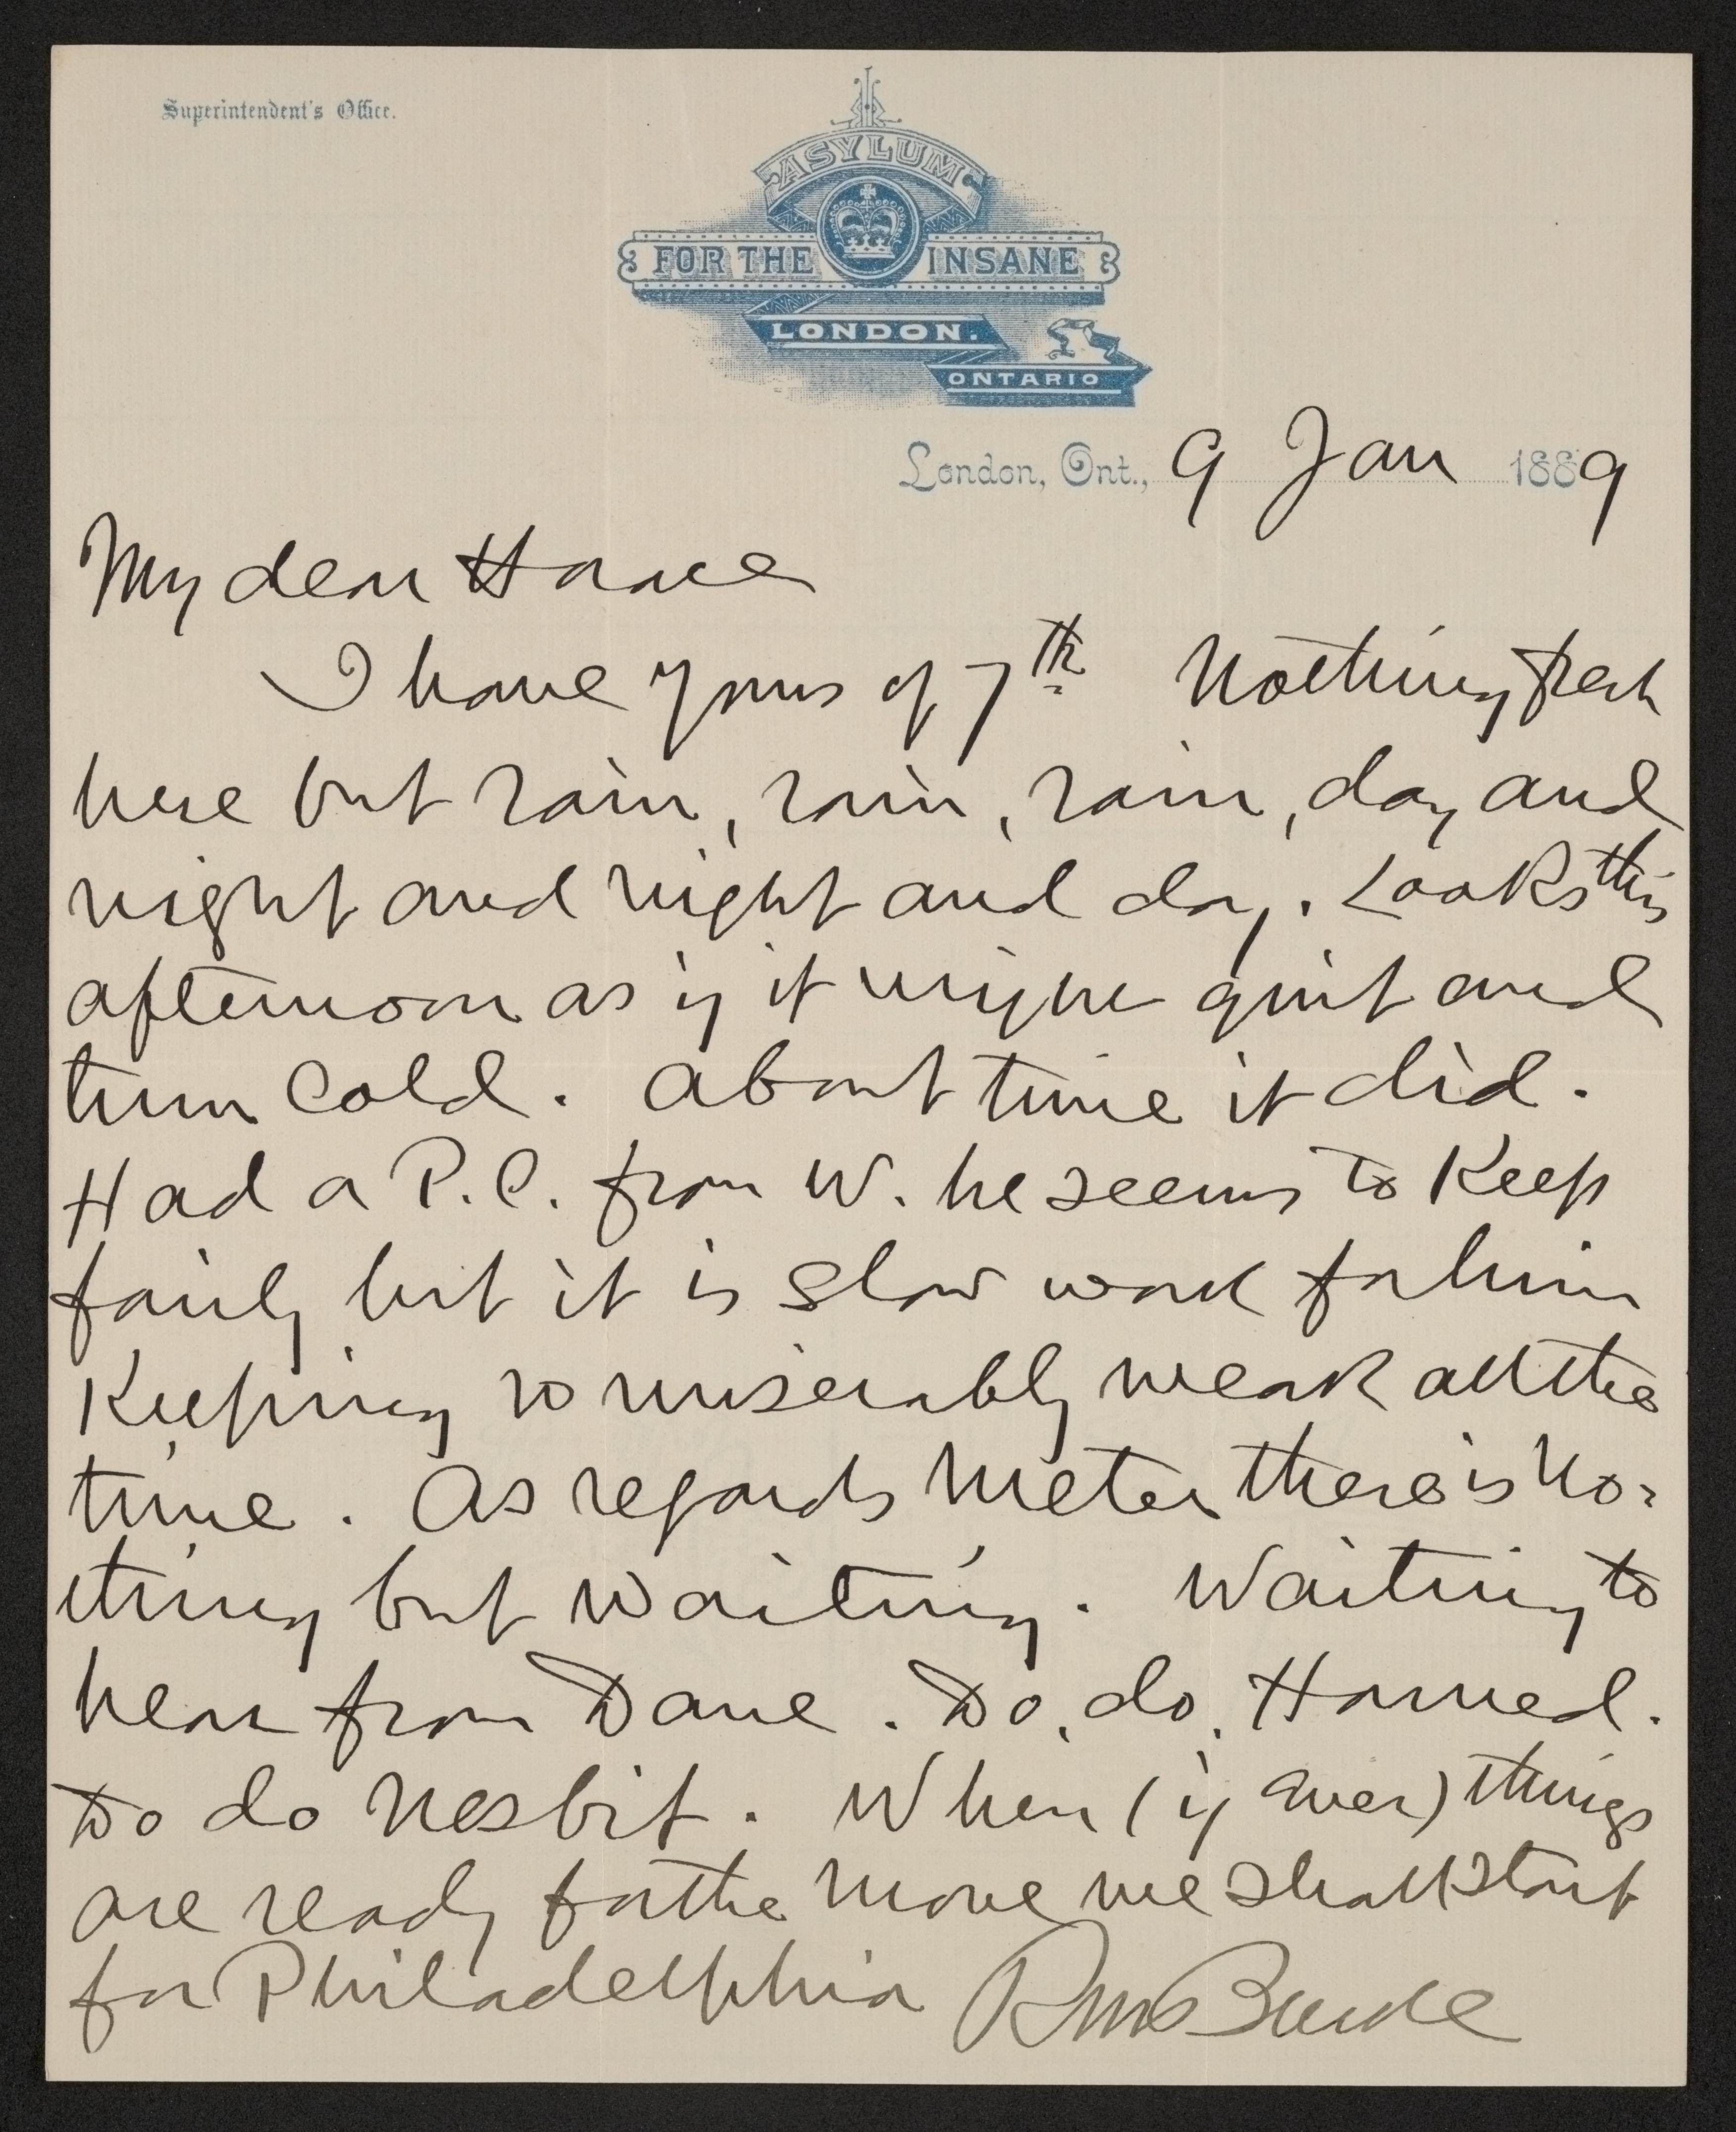 Superintendent's Office.
ASYLUM
FOR THE INSANE
LONDON.
ONTARIO
London, Ont., 9 Jan 1889
My dear Horace
I have yours of 7th Nothing fresh
here but rain, rain, rain, day and
night and night and day. Looks this
afternoon as if it might quit and
turn cold. About time it did.
Had a P.C. from W. he seems to keep
fairly but it is slow work for him
keeping so miserably weak all the
time. As regards meter there is no-
thing but waiting. Waiting to
hear from Dave. Do, do, Harned.
Do do Nesbit. When (if ever) things
are ready for the move we shall start
for Philadelphia RM Bucke